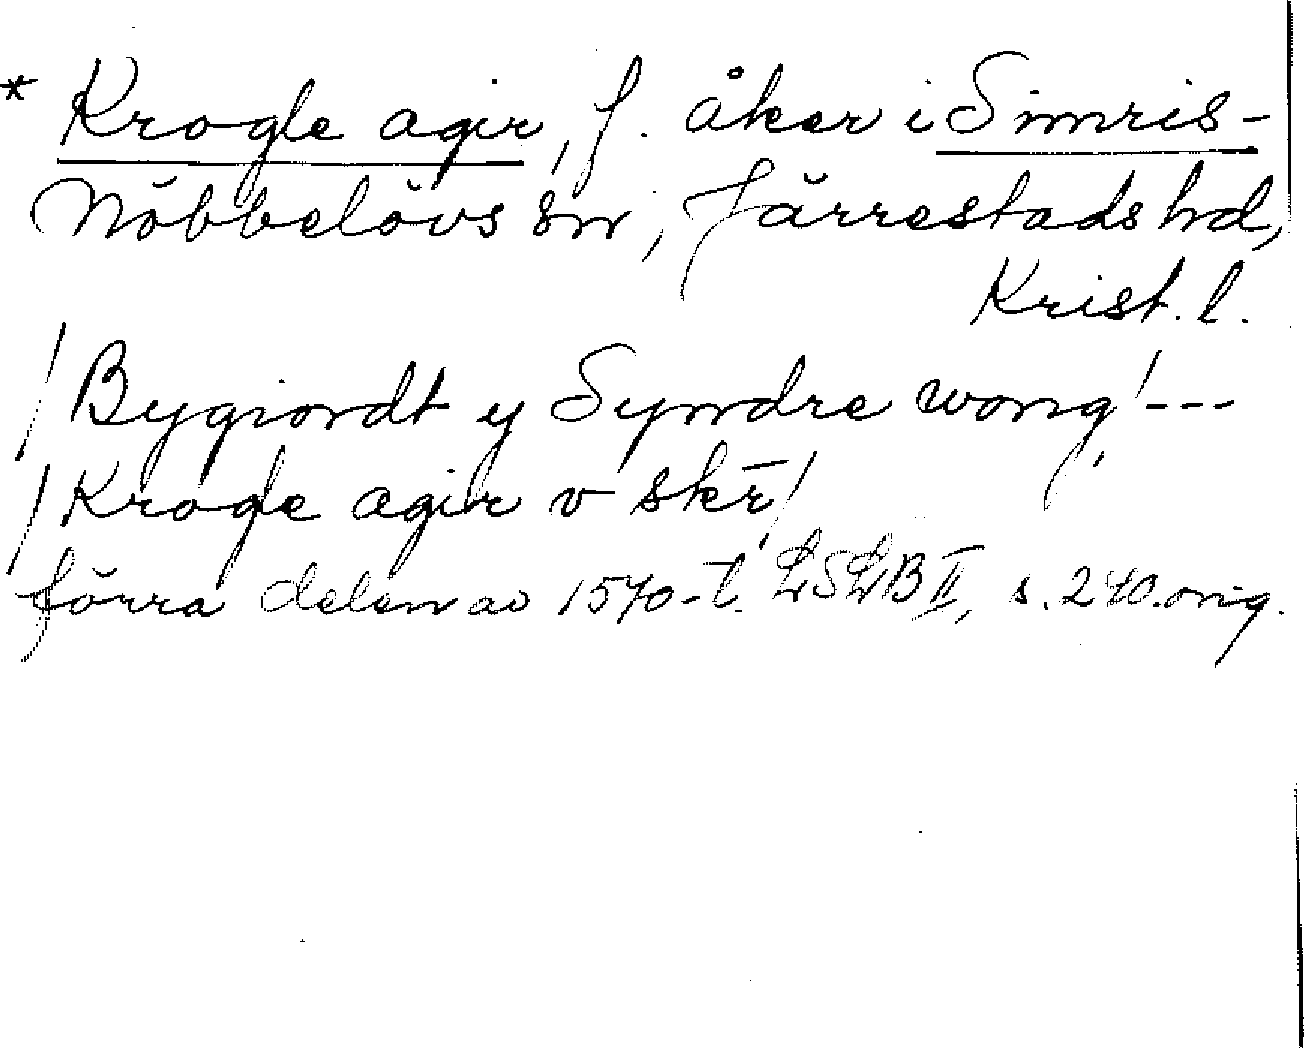 * Krogle agir, f. åker i Simris-
Nöbbelövs sn, Järrestads hd,
Krist. l.
/Bygiordt y Syndre wong/---
/Krogle agir v skr̄/
förra delen av 1570-t. LSLB II, s. 240. orig.